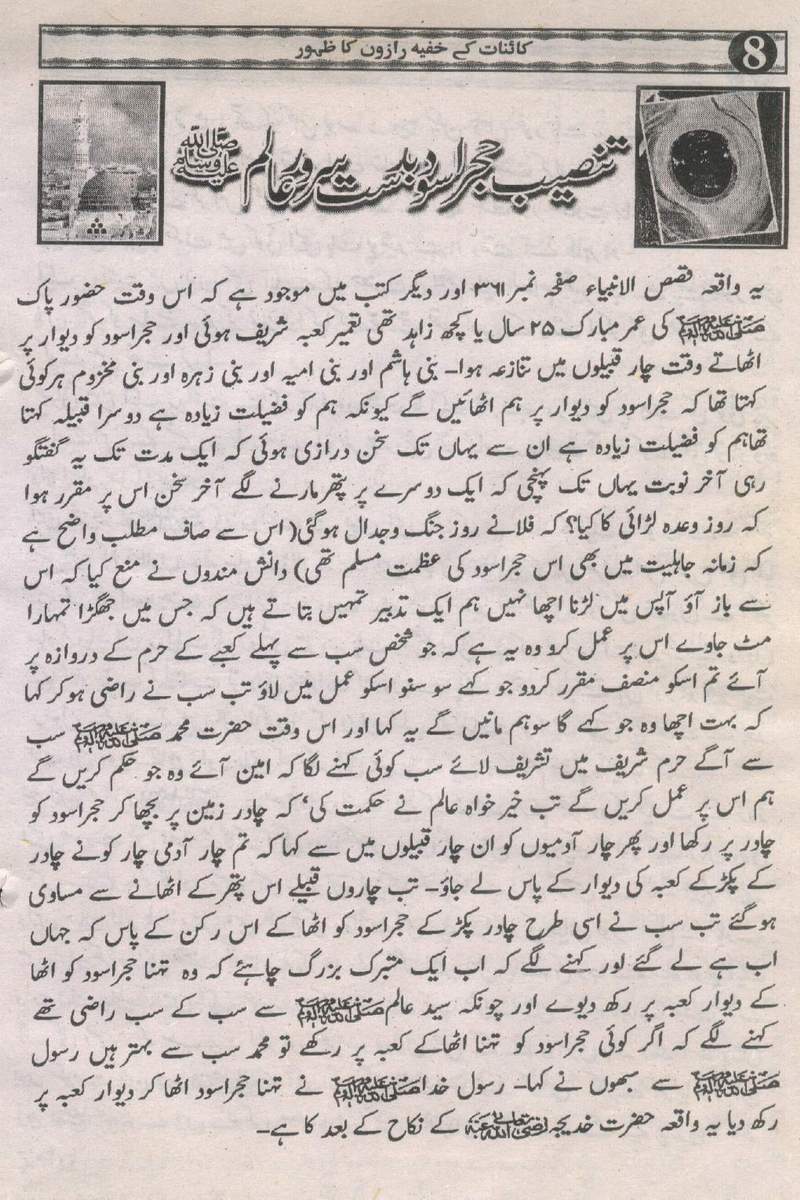 کائنات کے خفیہ رازوں کا ظہور
8
تنصیب حجر اسود بدست سرور عالم ﷺ
یہ واقعہ قصص الانبیاء صفحہ نمبر ۳۶۱ اور دیگر کتب میں موجود ہے کہ اس وقت حضور پاک
ﷺ کی عمر مبارک ۲۵ سال یا کچھ زاہد تھی تعمیر کعبہ شریف ہوئی اور حجر اسود کو دیوار پر
اٹھاتے وقت چار قبیلوں میں تنازعہ ہوا۔ بنی ہاشم اور بنی امیہ اور بنی زہرہ اور بنی مخزوم ہر کوئی
کہتا تھا کہ حجر اسود کو دیوار پر ہم اٹھائیں گے کیونکہ ہم کو فضیلت زیادہ ہے دوسرا قبیلہ کہتا
تھا ہم کو فضیلت زیادہ ہے ان سے یہاں تک سخن درازی ہوئی کہ ایک مدت تک یہ گفتگو
رہی آخر نوبت یہاں تک پہنچی کہ ایک دوسرے پر پتھر مارنے لگے آخر سخن اس پر مقرر ہوا
کہ روز وعدہ لڑائی کا کیا؟ کہ فلانے روز جنگ وجدال ہوگئی( اس سے صاف مطلب واضح ہے
کہ زمانہ جاہلیت میں بھی اس حجر اسود کی عظمت مسلم تھی) دانش مندوں نے منع کیا کہ اس
سے باز آؤ آپس میں لڑنا اچھا نہیں ہم ایک تدبیر تمہیں بتاتے ہیں کہ جس میں جھگڑا تمہارا
مٹ جاوے اس پر عمل کرو وہ یہ ہے کہ جو شخص سب سے پہلے کعبے کے حرم کے دروازہ پر
آئے تم اسکو منصف مقرر کردو جو کہے سو سنو اسکو عمل میں لاؤ تب سب نے راضی ہوکر کہا
کہ بہت اچھا وہ جو کہے گا سو ہم مانیں گے یہ کہا اور اس وقت حضرت محمد ﷺ سب
سے آگے حرم شریف میں تشریف لائے سب کوئی کہنے لگا کہ امین آئے وہ جو حکم کریں گے
ہم اس پر عمل کریں گے تب خیر خواہ عالم نے حکمت کی، کہ چادر زمین پر بچھا کر حجر اسود کو
چادر پر رکھا اور پھر چار آدمیوں کو ان چار قبیلوں میں سے کہا کہ تم چار آدمی چار کونے چادر
کے پکڑ کے کعبہ کی دیوار کے پاس لے جاؤ۔ تب چاروں قبیلے اس پتھر کے اٹھانے سے مساوی
ہوگئے تب سب نے اسی طرح چادر پکڑ کے حجر اسود کو اٹھا کے اس رکن کے پاس کہ جہاں
اب ہے لے گئے اور کہنے لگے کہ اب ایک متبرک بزرگ چاہئے کہ وہ تنہا حجر اسود کو اٹھا
کے دیوار کعبہ پر رکھ دیوے اور چونکہ سید عالم ﷺ سے سب کے سب راضی تھے
کہنے لگے کہ اگر کوئی حجر اسود کو تنہا اٹھاکے کعبہ پر رکھے تو محمد سب سے بہتر ہیں رسول
ﷺ سے سبھوں نے کہا۔ رسول خدا ﷺ نے تنہا حجر اسود اٹھا کر دیوار کعبہ پر
رکھ دیا یہ واقعہ حضرت خدیجہ رضی اللہ تعالیٰ عنہ کے نکاح کے بعد کا ہے۔